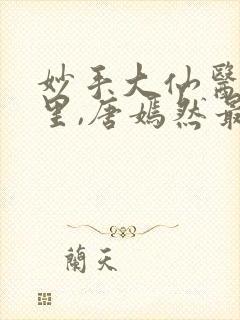 妙手大仙醫
里,唐嫣然最
蘭天